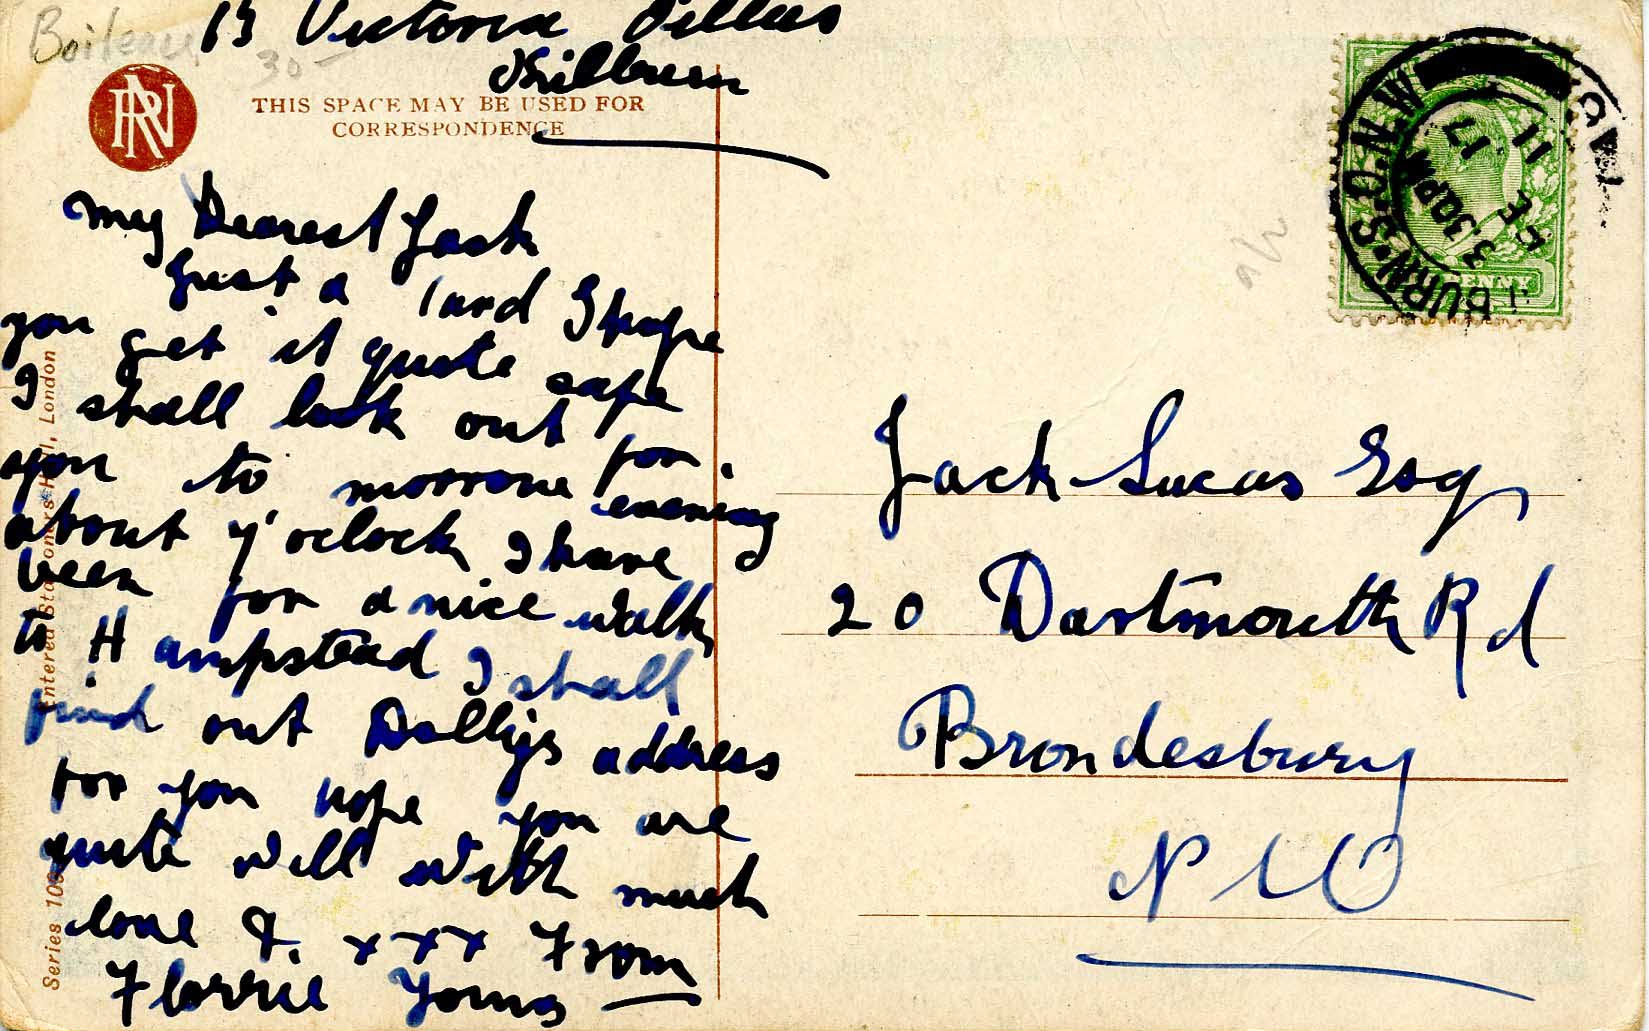 Boileau
13 Victoria Villas
30-
Kilburn
RN
THIS SPACE MAY BE USED FOR
CORRESPONDENCE
My Dearest Jack
Just a Card I hope
you get it quite safe
I shall look out for
you to morrow evening
about 7 o'clock I have
been for a nice walk
to Hampstead I shall
find out Dollys address
for you hope you are
quite well with much
love & xxx From
Florrie Young
Entered Stationers Hall, London
Series
BURN·S.O·N.W
3.30PM
DE 17
11
PENNY
Jack Lucas Esq
20 Dartmouth Rd
Brondesbury
N W